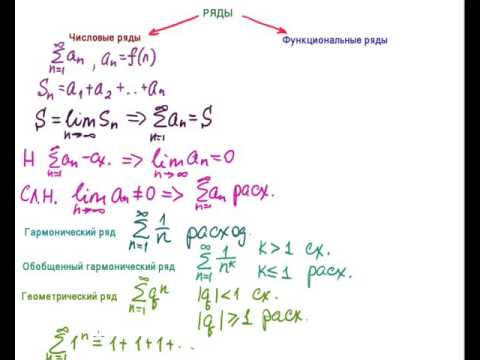 РЯДЫ
Числовые ряды
Функциональные ряды
∞ ∑ n=1 aₙ , aₙ=f(n)
Sₙ=a₁+a₂+..+aₙ
S=lim n→∞ Sₙ => ∞ ∑ n=1 aₙ=S
Н ∞ ∑ n=1 aₙ-сх. => lim n→∞ aₙ=0
СЛ.Н. lim n→∞ aₙ≠0 => ∞ ∑ n=1 aₙ расх.
Гармонический ряд ∞ ∑ n=1 1/n расход.
Обобщенный гармонический ряд ∞ ∑ n=1 1/nᵏ k>1 сх.
k≤1 расх.
Геометрический ряд ∞ ∑ n=1 qⁿ |q|<1 сх.
|q|≥1 расх.
∞ ∑ n=1 1ⁿ=1+1+1+..